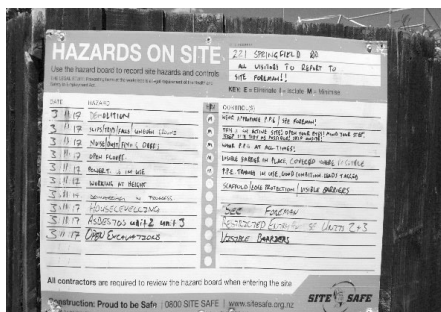 HAZARDS ON SITE
Use the hazard board to record site hazards and controls
221 SPRINGFIELD RD
ALL VISITORS TO REPORT TO
SITE FOREMAN!!
KEY: E = Eliminate I = Isolate M = Minimise
DATE HAZARD CONTROL(S)
3 11 17 DEMOLITION WEAR APPROPRIATE P.P.E / SEE FOREMAN
3 11 17 SLIPS/TRIPS/FALLS UNEVEN THIS IS AN ACTIVE SITE! OPEN YOUR EYES! MIND YOUR STEP.
3 11 17 NOISE/DUST/FLYING DEBRIS WEAR P.P.E AT ALL TIMES!
3 11 17 OPEN FLOORS VISIBLE BARRIER IN PLACE, COVERED WHERE POSSIBLE
3 11 17 POWERT. IN USE P.P.E. LEADS TAGGED
3 11 17 WORKING AT HEIGHT SCAFFOLD / EDGE PROTECTION / VISIBLE BARRIERS
3 11 17 IN PROGRESS
3 11 17 HOUSELEVELLING SEE FOREMAN
3 11 17 ASBESTOS unit 2 unit 3 RESTRICTED UNITS 2+3
3 11 17 OPEN EXCAVATIONS VISIBLE BARRIERS
All contractors are required to review the hazard board when entering the site
Construction: Proud to be Safe | 0800 SITE SAFE | www.sitesafe.org.nz
SITE SAFE